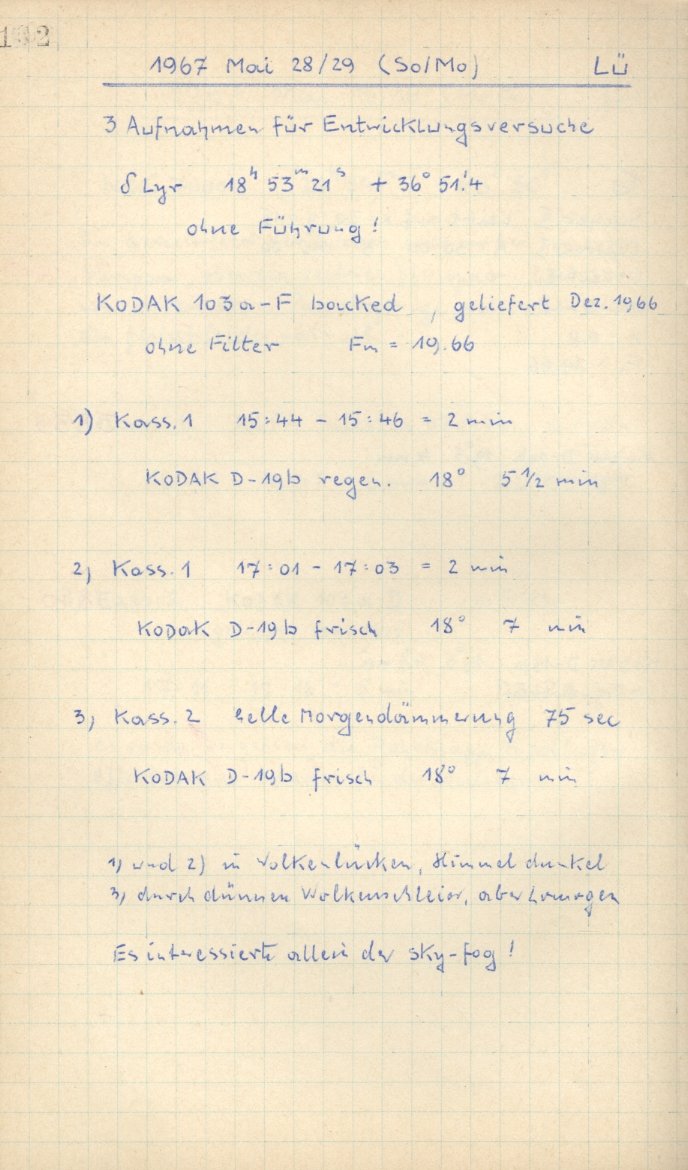 1967 Mai 28/29 (So/Mo) Lü
3 Aufnahmen für Entwicklungsversuche
δ Lyr 18ʰ 53ᵐ 21ˢ + 36° 51'.4
ohne Führung!
KODAK 103a-F backed, geliefert Dez. 1966
ohne Filter Fm = 19.66
1) Kass. 1 15:44 - 15:46 = 2 min
KODAK D-19b regen. 18° 5 1/2 min
2) Kass. 1 17:01 - 17:03 = 2 min
KODAK D-19b frisch 18° 7 min
3) Kass. 2 helle Morgendämmerung 75 sec
KODAK D-19b frisch 18° 7 min
1) und 2) in Wolkenlücken, Himmel dunkel
3) durch dünnen Wolkenschleier, aber homogen
Es interessierte allein der sky-fog!